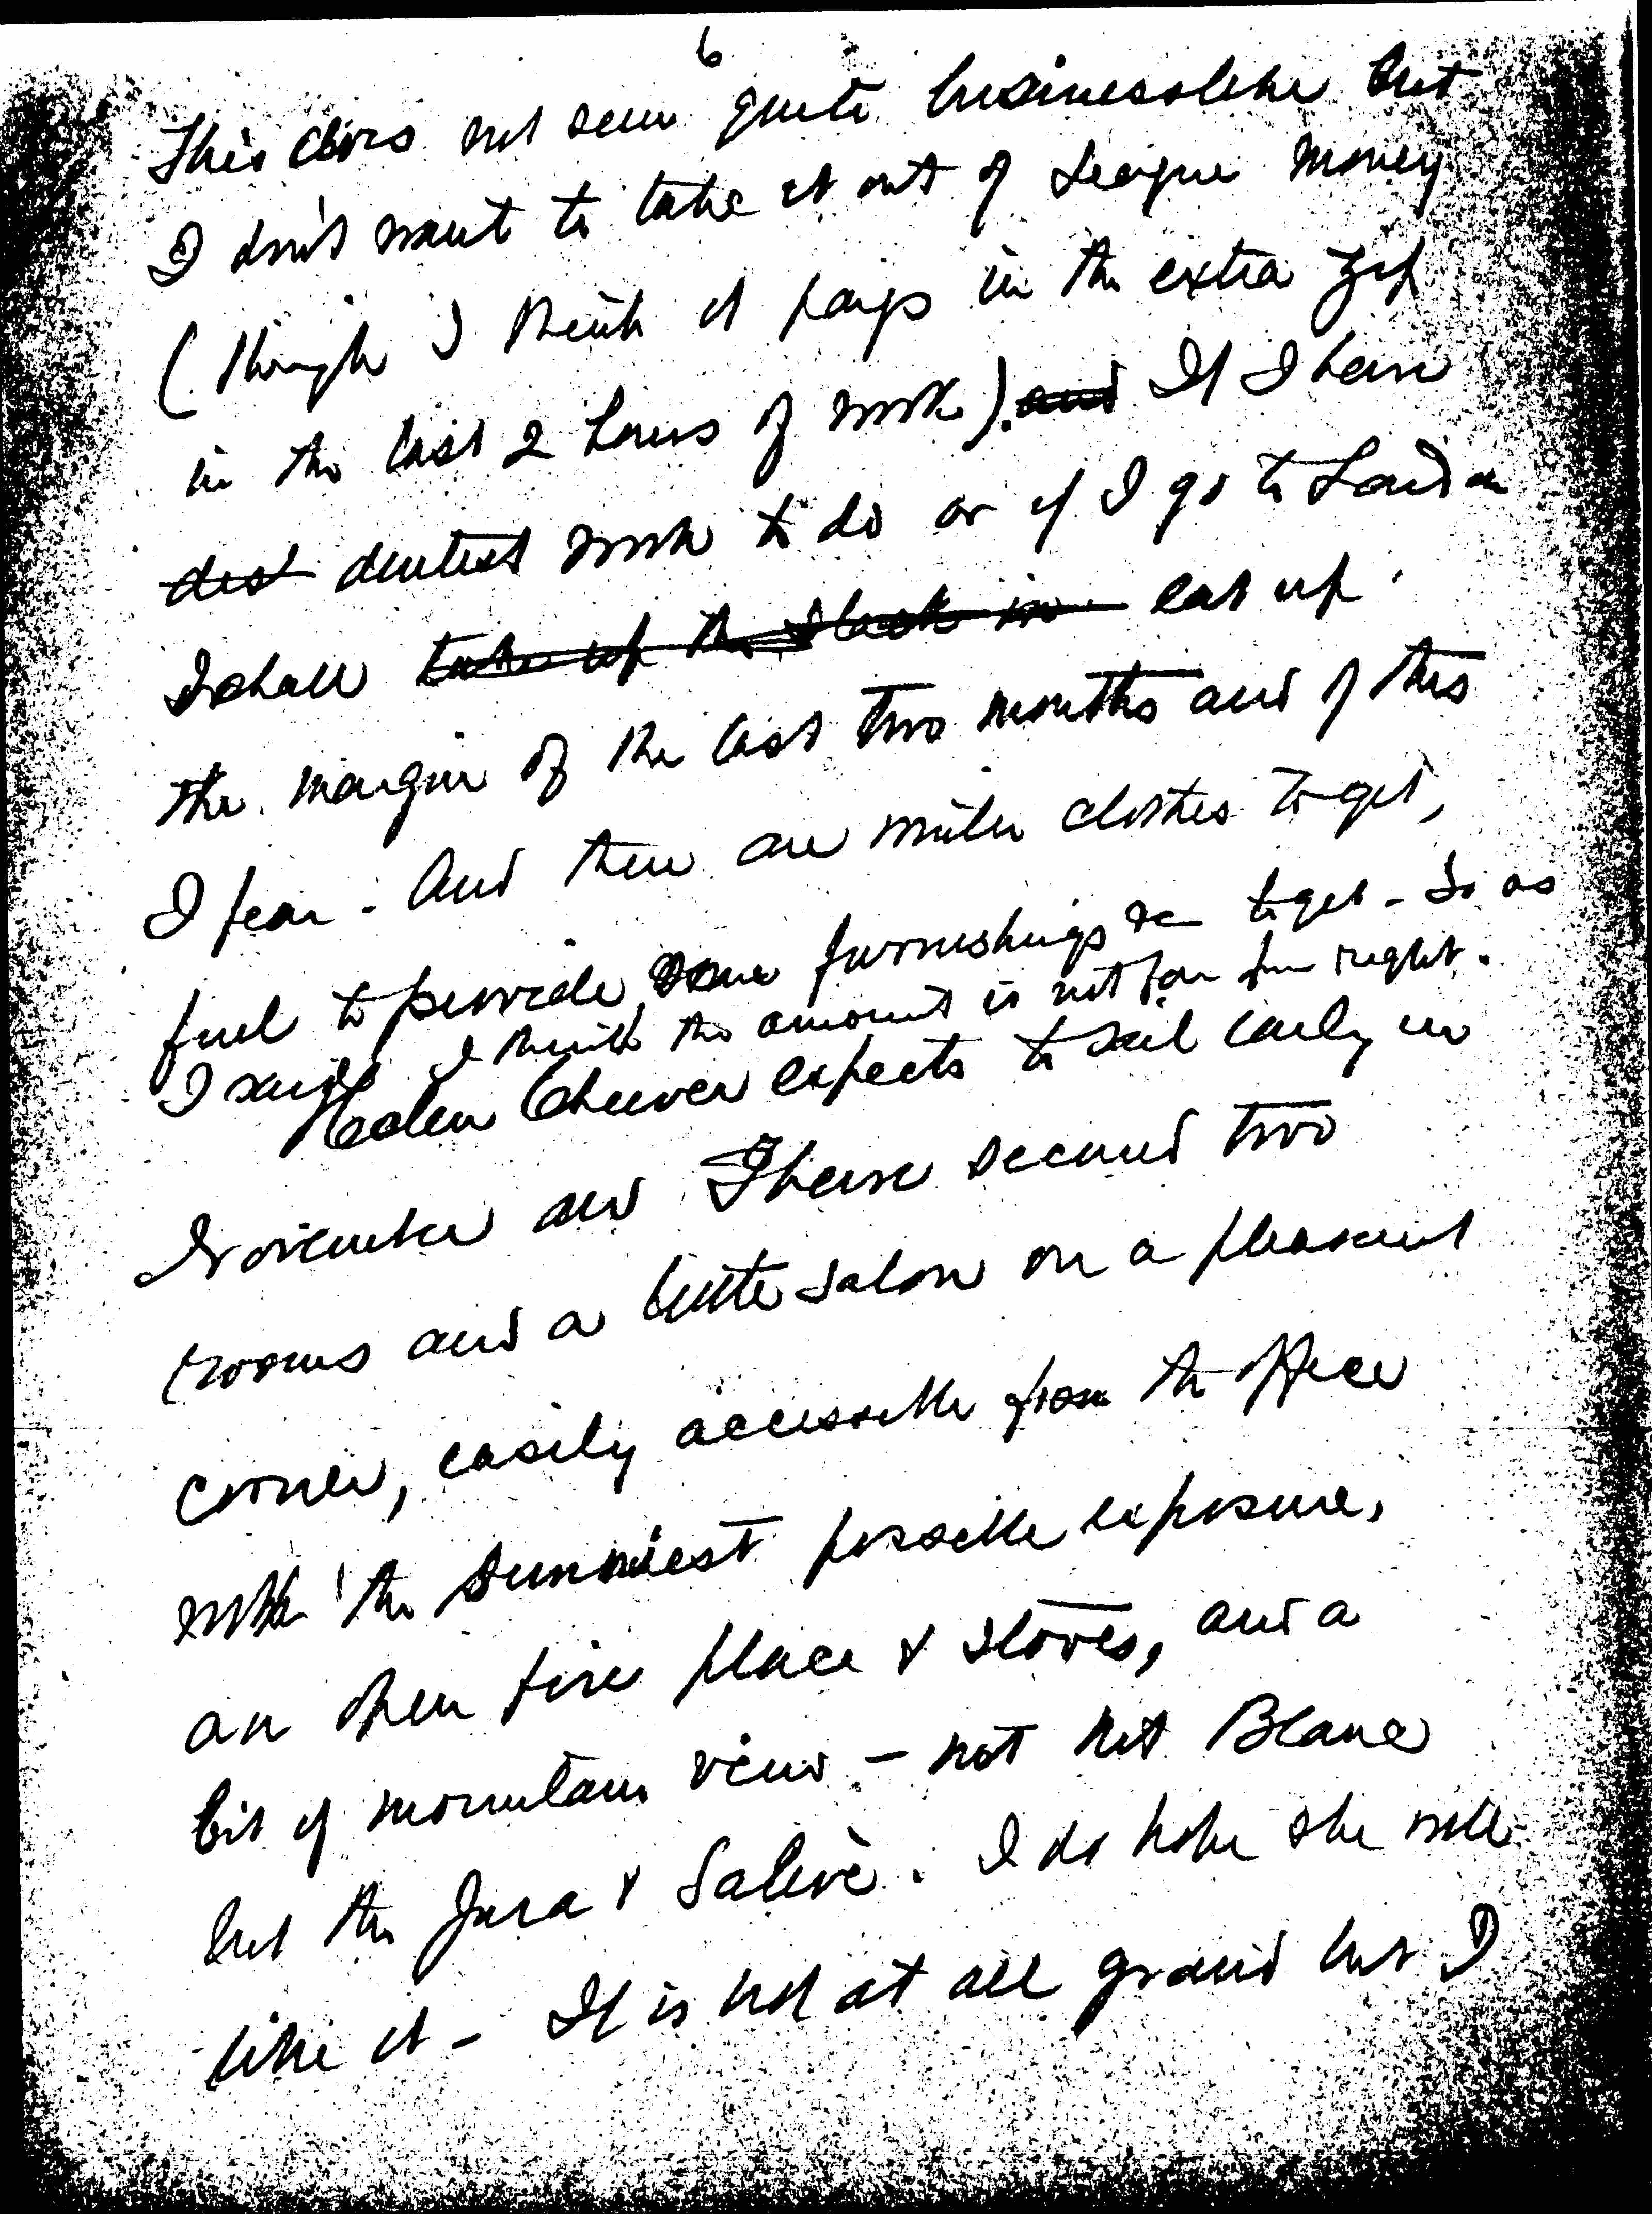 6
This does not seem quite businesslike but
I don't want to take it out of League money
(though I think it pays in the extra zip
in the last 2 hours of work). and If I have
dist dentist work to do or if I go to London
I shall take up the slack in eat up
the margin of the last two months and of this
I fear. And there are winter clothes to get,
fuel to provide, some furnishings &c to get - So as
I said I think the amount is not far from right.
Helen Cheever expects to sail early in
November and I have secured two
rooms and a little salon on a pleasant
corner, easily accessible from the office
with the sunniest possible exposure,
an open fire place & stoves, and a
bit of mountain view - not Mt Blanc
but the Jura & Salève. I do hope she will
like it - It is not at all grand but I